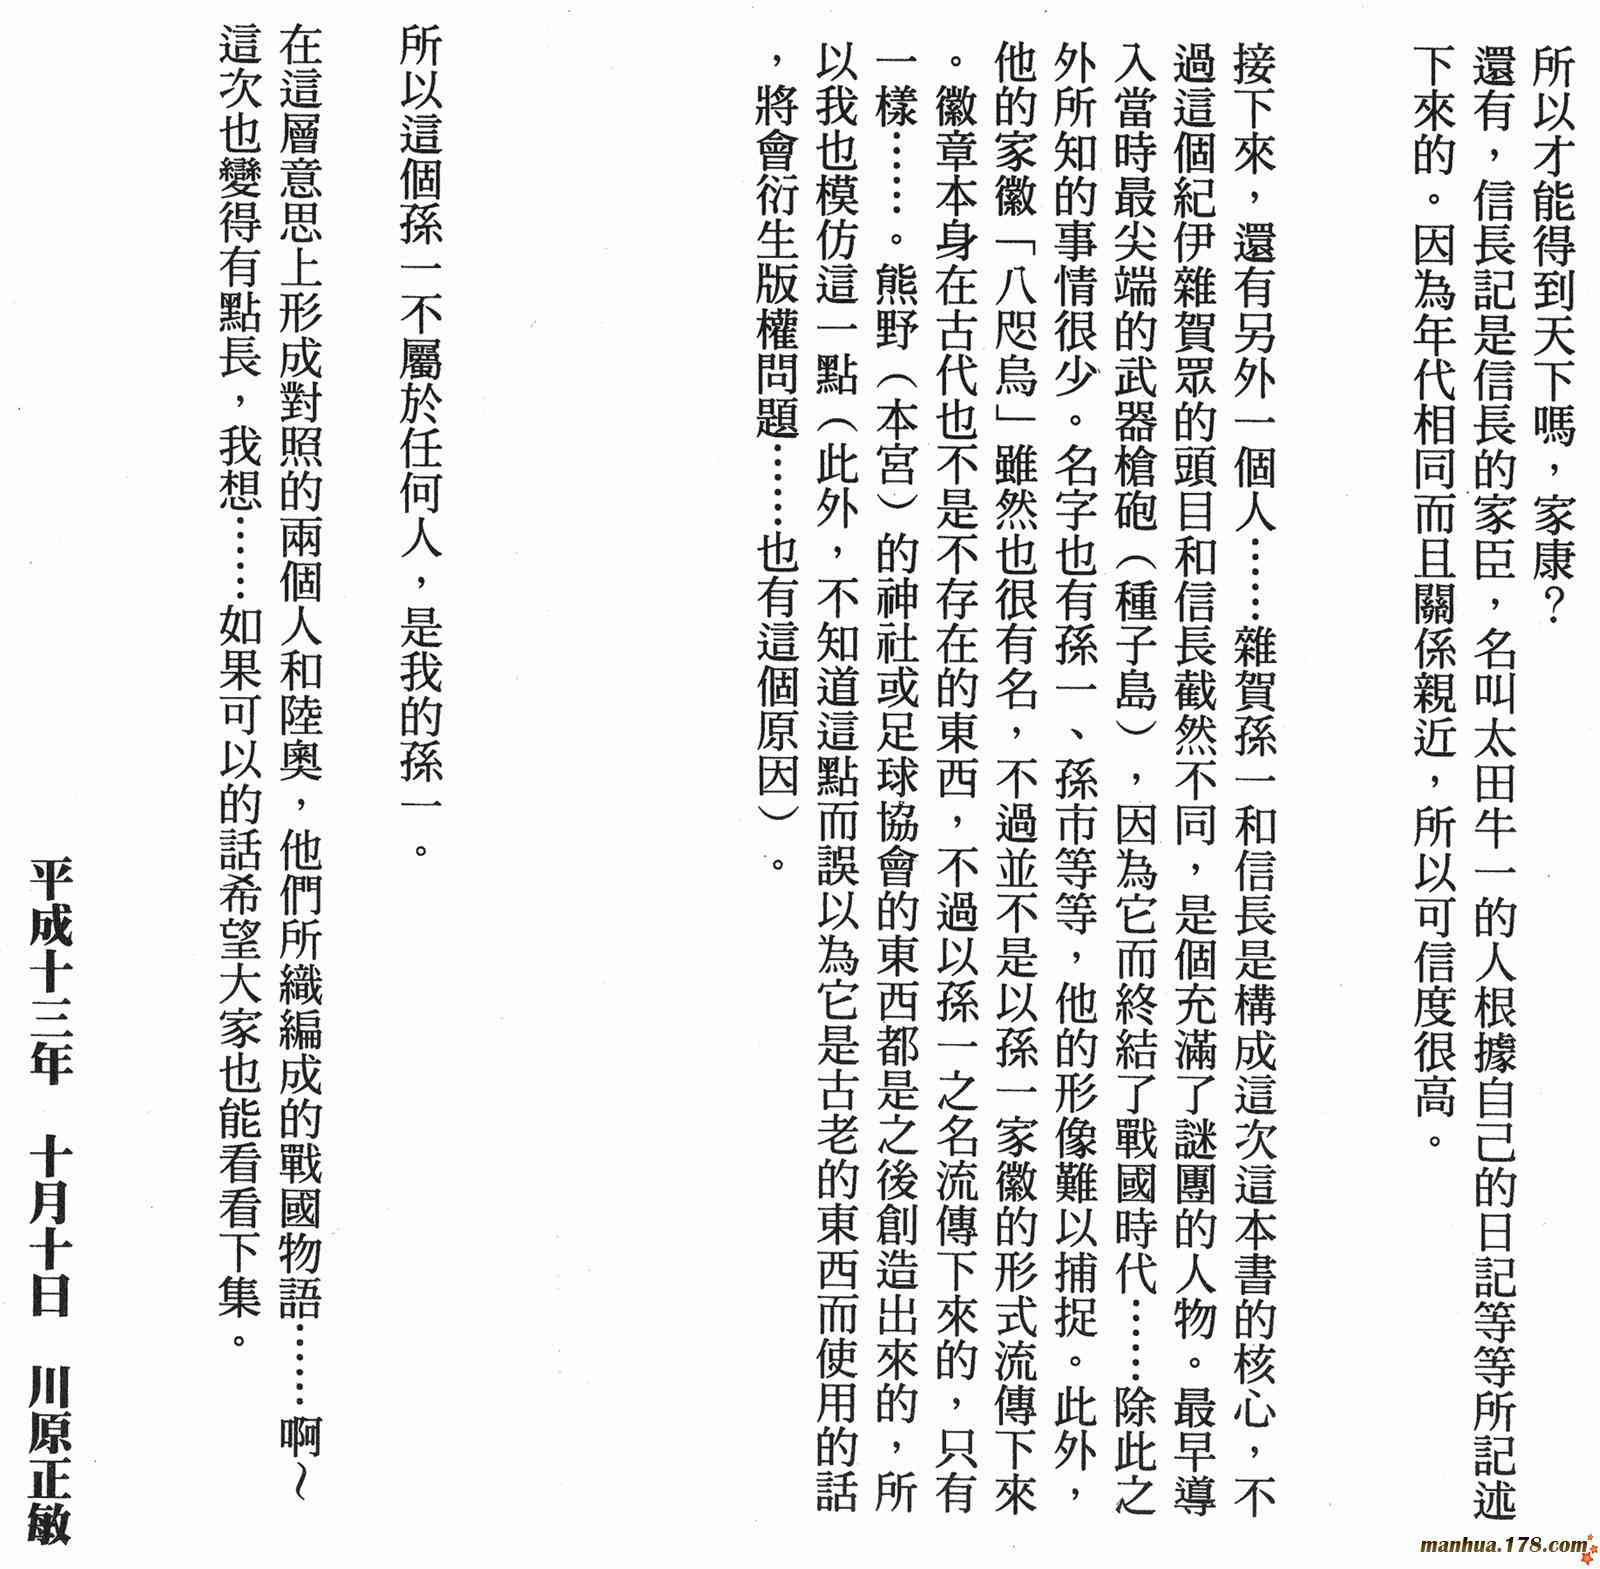 所以才能得到天下嗎，家康？
還有，信長記是信長的家臣，名叫太田牛一的人根據自己的日記等等所記述
下來的。因為年代相同而且關係親近，所以可信度很高。
接下來，還有另外一個人……雜賀孫一和信長是構成這次這本書的核心，不
過這個紀伊雜賀眾的頭目和信長截然不同，是個充滿了謎團的人物。最早導
入當時最尖端的武器槍砲（種子島），因為它而終結了戰國時代……除此之
外所知的事情很少。名字也有孫一、孫市等等，他的形像難以捕捉。此外，
他的家徽「八咫烏」雖然也很有名，不過並不是以孫一家徽的形式流傳下來
。徽章本身在古代也不是不存在的東西，不過以孫一之名流傳下來的，只有
一樣……。熊野（本宮）的神社或足球協會的東西都是之後創造出來的，所
以我也模仿這一點（此外，不知道這點而誤以為它是古老的東西而使用的話
，將會衍生版權問題……也有這個原因）。
所以這個孫一不屬於任何人，是我的孫一。
在這層意思上形成對照的兩個人和陸奧，他們所織編成的戰國物語……啊～
這次也變得有點長，我想……如果可以的話希望大家也能看看下集。
平成十三年　十月十日　川原正敏
manhua.178.com